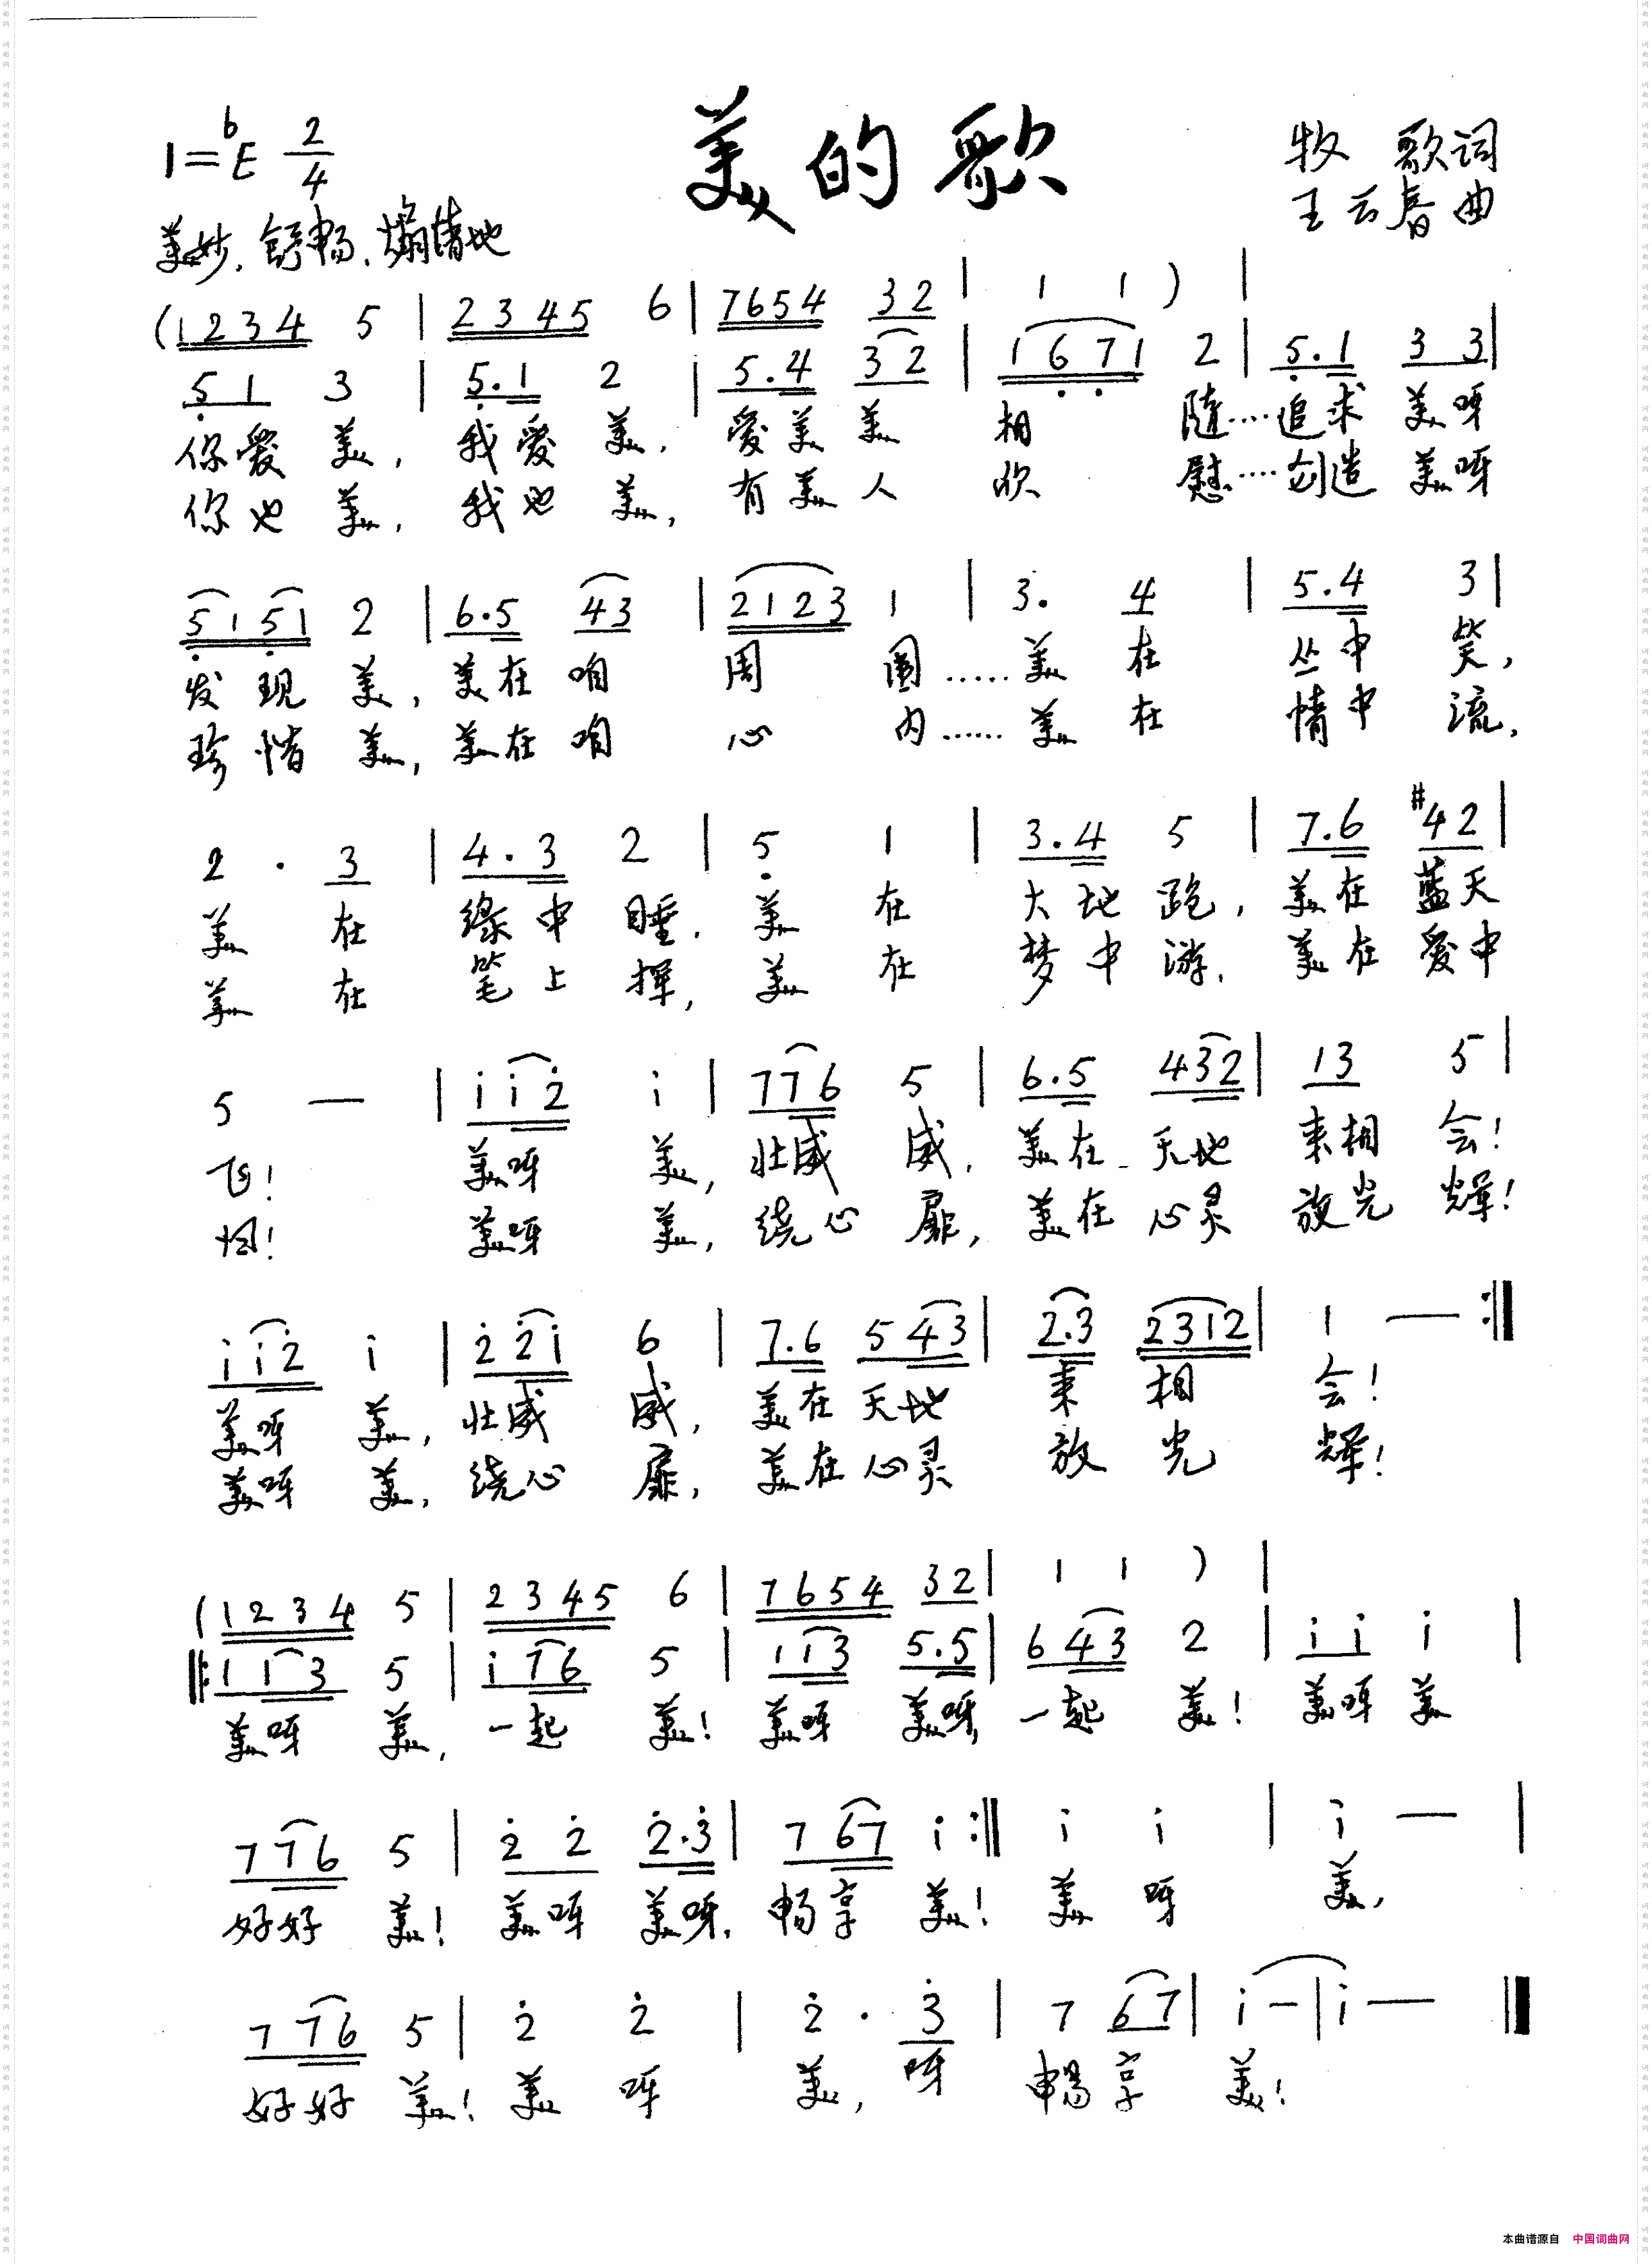 美的歌
1=♭E 2/4
牧 歌词
王云春曲
美妙、舒畅、煽情地
(1234 5 | 2345 6 | 7654 32 | 1 1 ) |
51 3 | 5.1 2 | 5.4 32 | 1671 2 | 5.1 33 |
你爱 美, 我爱 美, 爱美美 相 随……追求 美呀
你也 美, 我也 美, 有美人 欣 慰……创造 美呀
5151 2 | 6.5 43 | 2123 1 | 3. 4 | 5.4 3 |
发现 美, 美在咱 周 围……美 在 丛中 笑,
珍惜 美, 美在咱 心 内……美 在 情中 流,
2 . 3 | 4.3 2 | 5 1 | 3.4 5 | 7.6 #42 |
美 在 绿中 睡, 美 在 大地 跑, 美在 蓝天
美 在 笔上 挥, 美 在 梦中 游, 美在 爱中
5 — | i i2 i | 776 5 | 6.5 432 | 13 5 |
飞! 美呀 美, 壮威 威, 美在 天地 来相 会!
美呀 美, 绕心 扉, 美在 心灵 放光 辉!
i i2 i | 2 2i 6 | 7.6 543 | 2.3 2312 | 1 — :‖
美呀 美, 壮威 威, 美在 天地 来 相 会!
美呀 美, 绕心 扉, 美在 心灵 放 光 辉!
(1234 5 | 2345 6 | 7654 32 | 1 1 ) |
‖: 113 5 | i76 5 | 113 5.5 | 643 2 | i i i |
美呀 美, 一起 美! 美呀 美呀, 一起 美! 美呀 美
776 5 | 2 2 2.3 | 7 67 i :‖ i i | i — |
好好 美! 美呀 美呀, 畅享 美! 美 呀 美,
776 5 | 2 2 | 2 . 3 | 7 67 | i — | i — ‖
好好 美! 美 呀 美, 呀 畅享 美!
本曲谱源自 中国词曲网